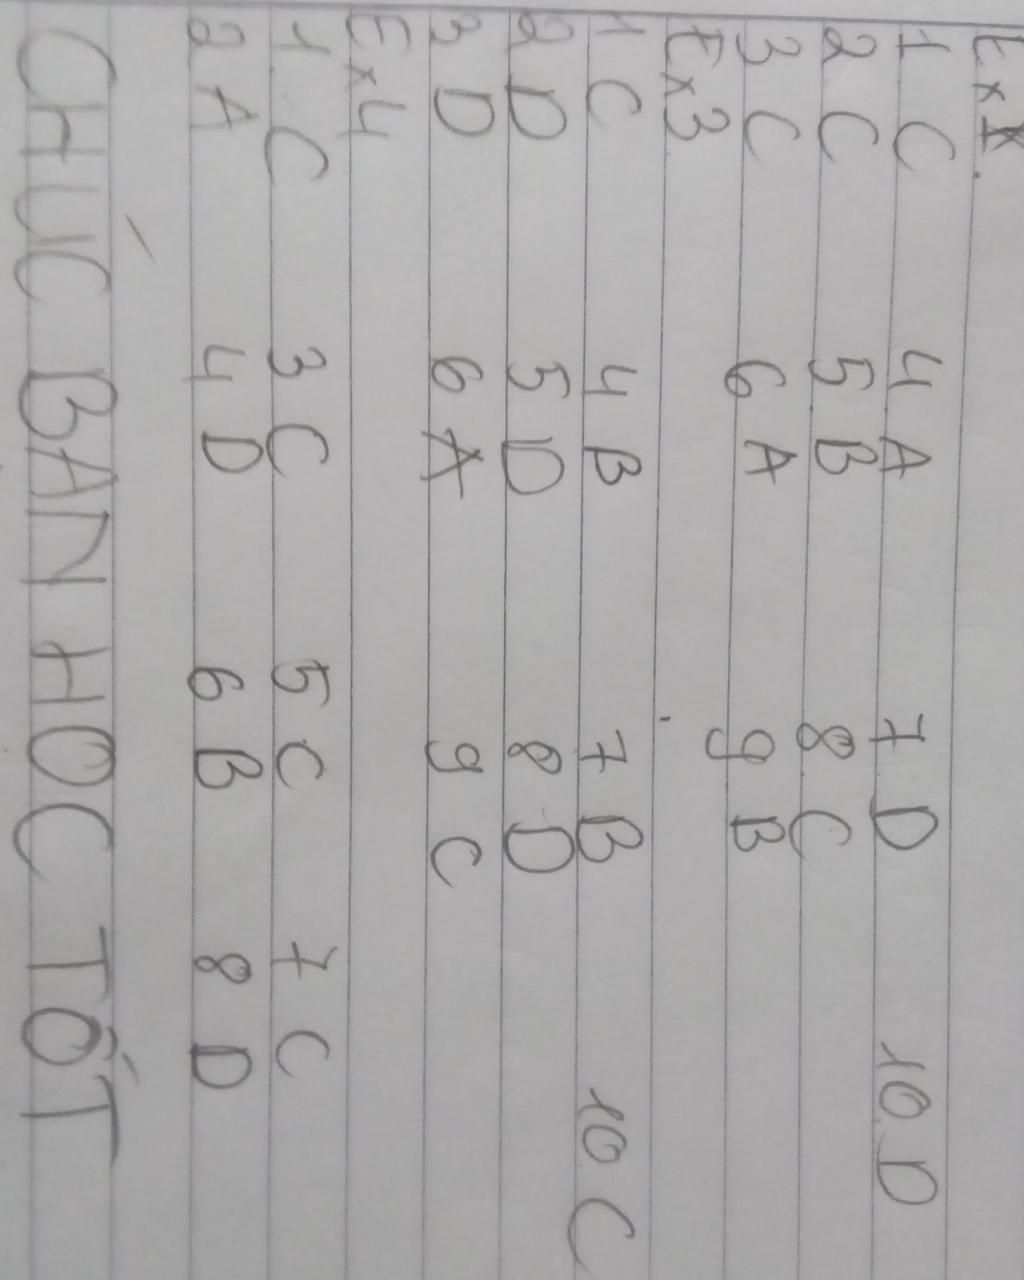 Ex
1 C 4 A 7 D 10 D
2 C 5 B 8 C
3 C 6 A 9 B
Ex 3
1 C 4 B 7 B 10 C
2 D 5 D 8 D
3 D 6 A 9 C
Ex 4
1 C 3 C 5 C 7 C
2 A 4 D 6 B 8 D
CHÚC BAN HOC TỐT